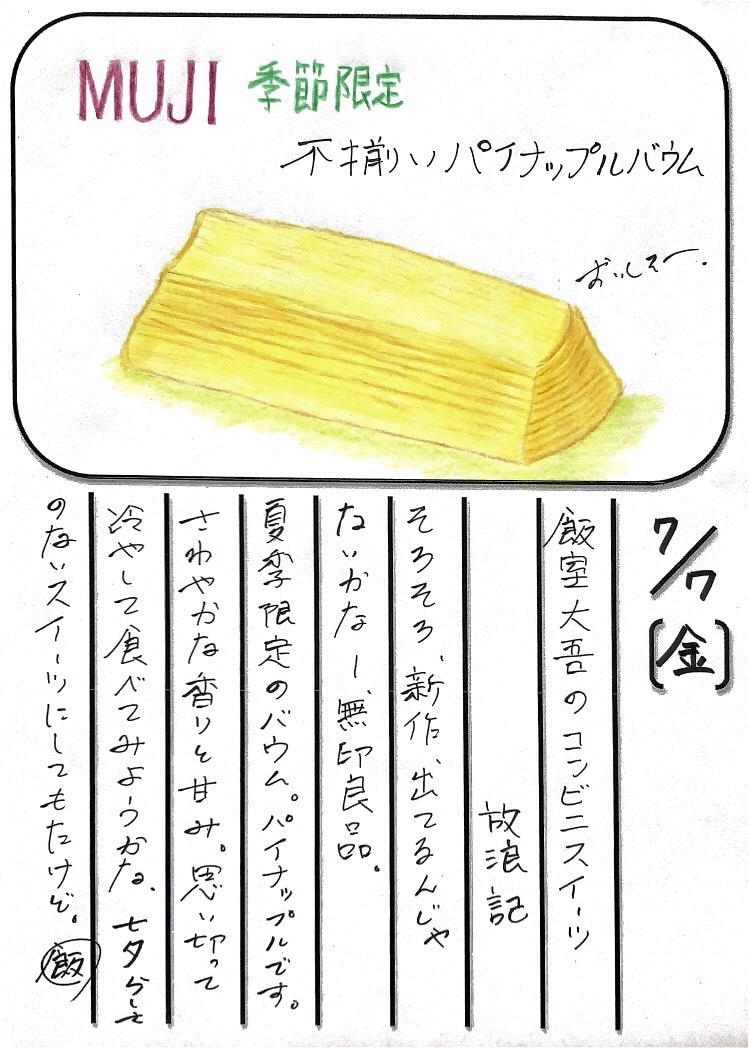 MUJI 季節限定
不揃いパイナップルバウム
おいしそー.
7/7
(金)
飯室大吾のコンビニスイーツ
放浪記
そろそろ、新作、出てるんじゃ
ないかなー、無印良品。
夏季限定のバウム。パイナップルです。
さわやかな香りと甘み。思い切って
冷やして食べてみようかな、七夕らしさ
のないスイーツにしてもたけど。
飯